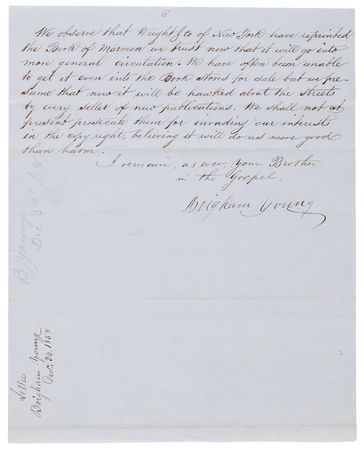 6
We observe that Wright & Co of New York have reprinted
the Book of Mormon we trust now that it will go into
more general circulation. We have often been unable
to get it even into the Book Stores for sale but we pre-
sume that now it will be hawked about the streets
by every seller of new publications. We shall not at
present prosecute them for invading our interests
in the copy right, believing it will do us more good
than harm.
I remain, as ever, your Brother
in the Gospel.
Brigham Young
B Young
Dec 30th /58
Letter
Brigham Young
Dec. 30. 1858